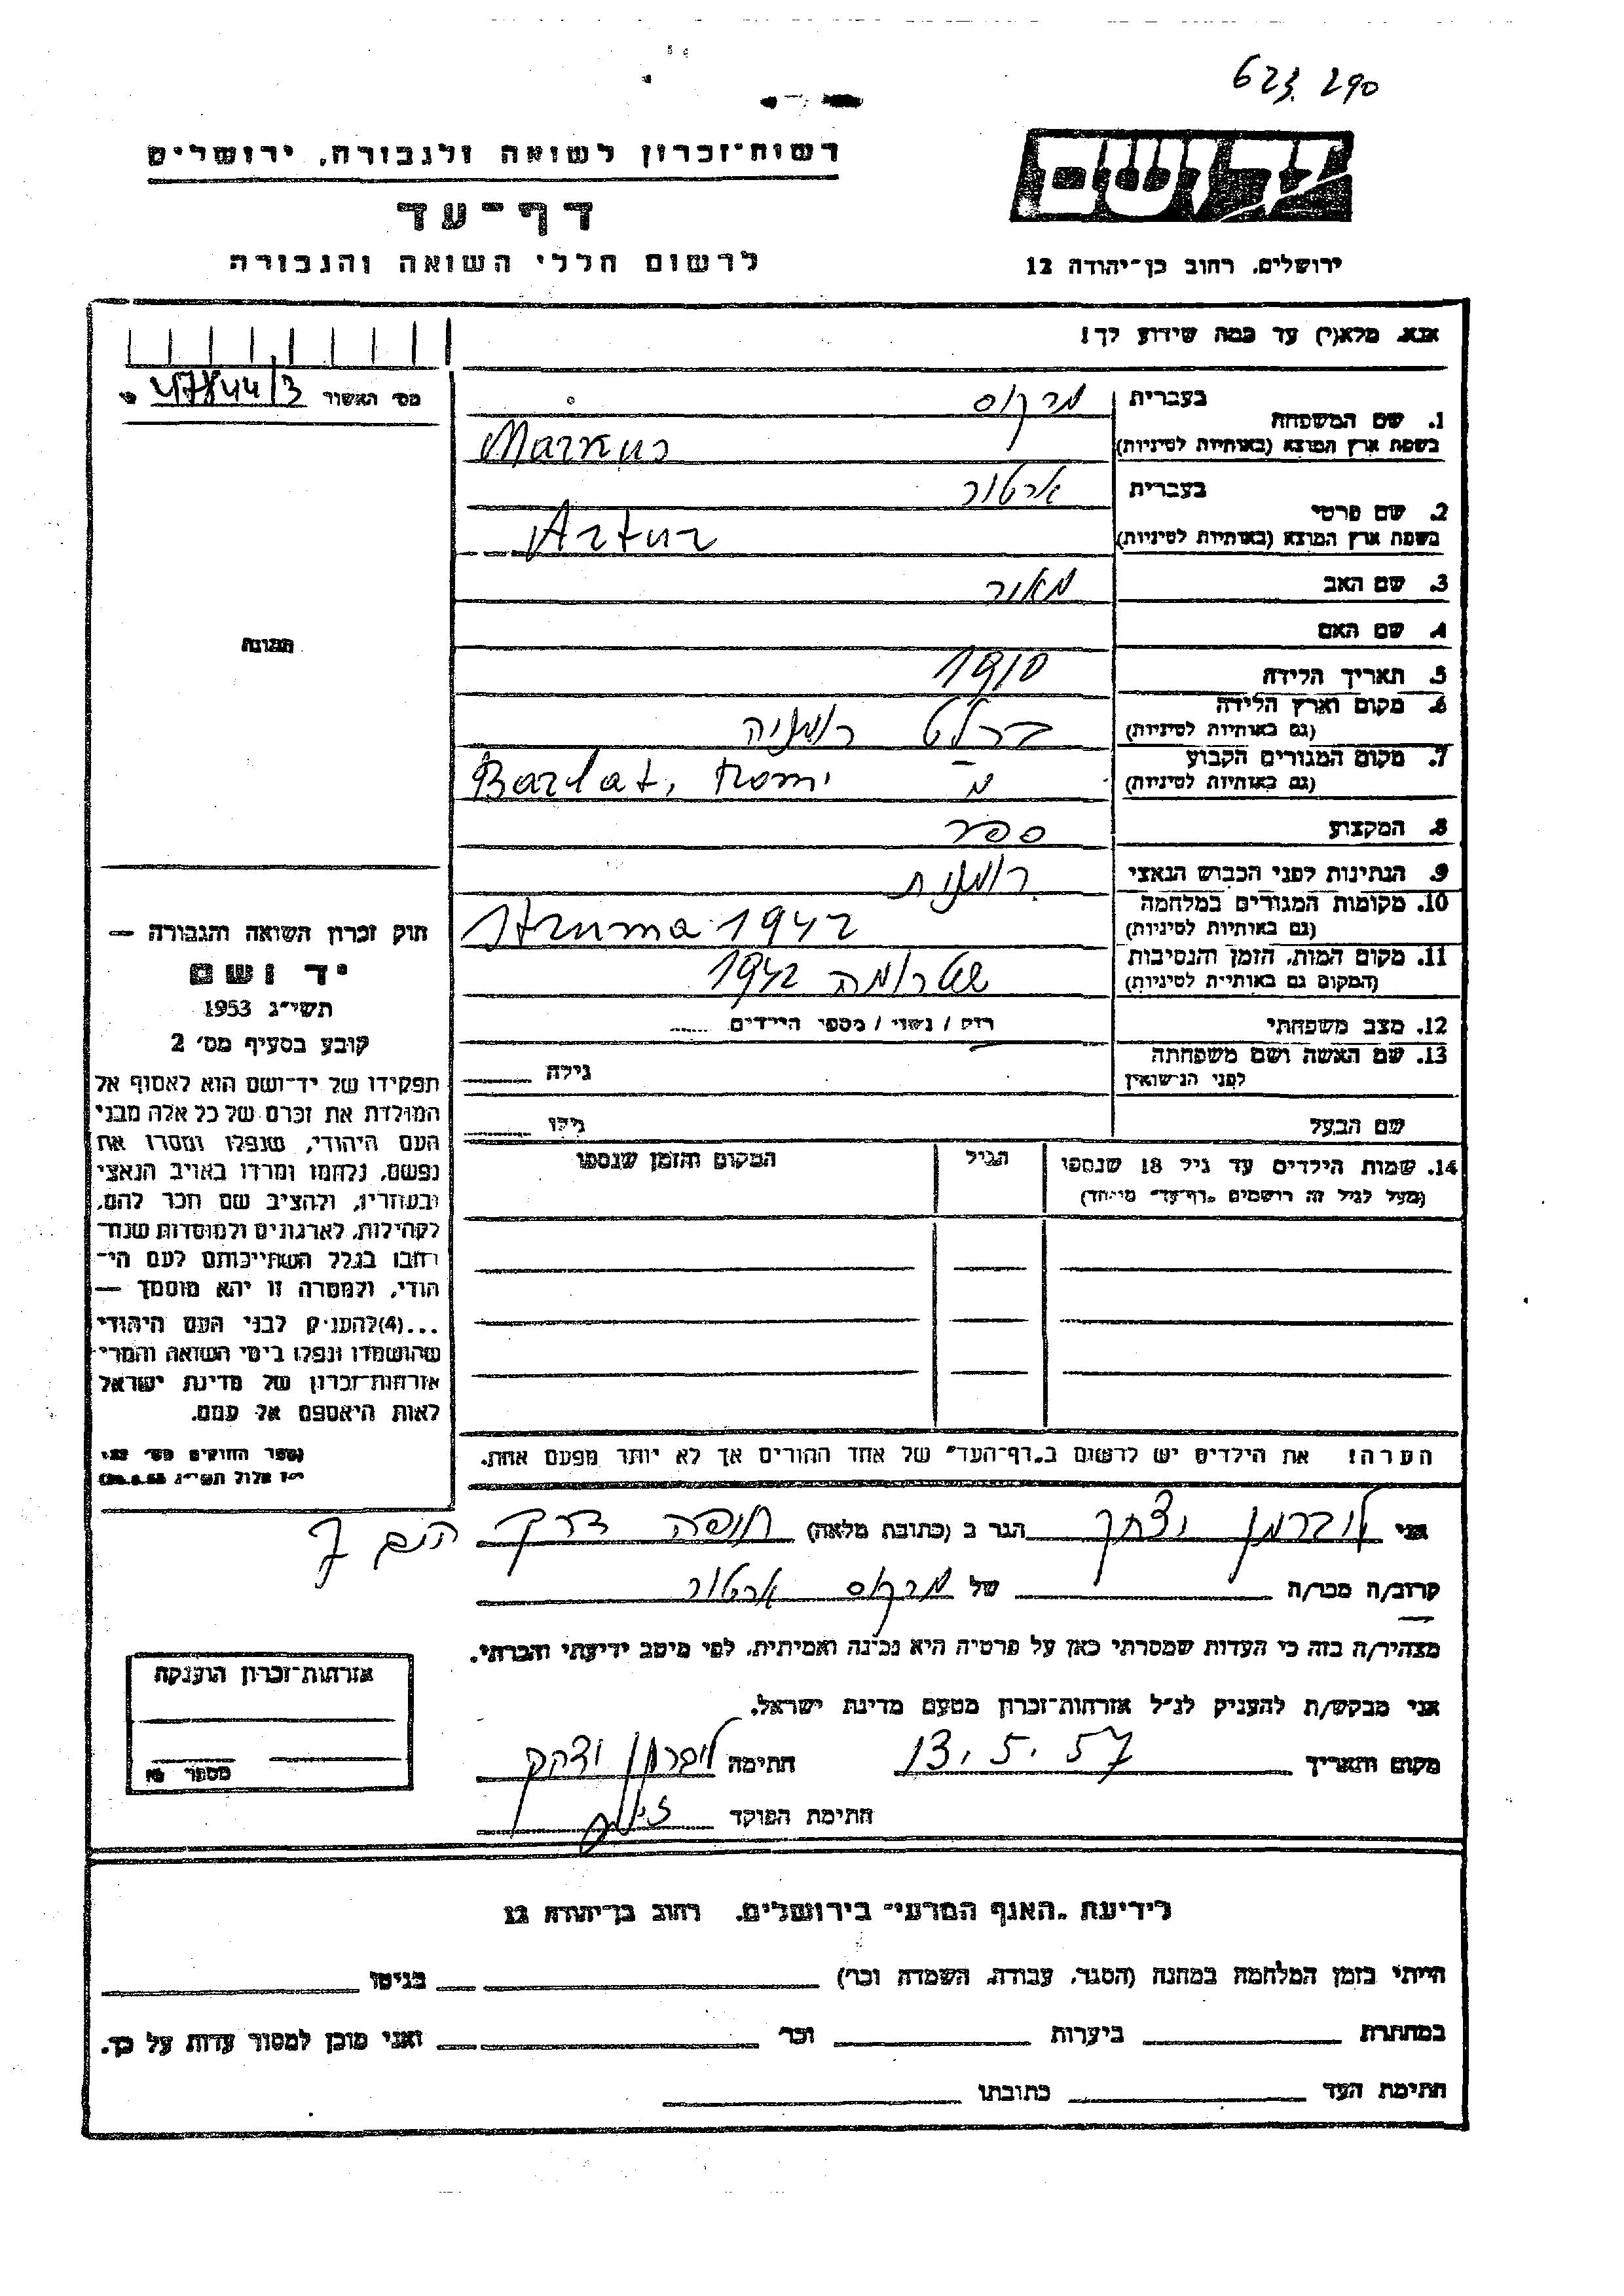 623.290
רשות־זכרון לשואה ולגבורה, ירושלים
יד ושם
דף־עד
לרשום חללי השואה והגבורה
ירושלים, רחוב בן־יהודה 12
אנא, מלא(י) עד כמה שידוע לך!
מס׳ האשור 47844/3
1. שם המשפחה בעברית מרקוס
בשפת ארץ המוצא (באותיות לטיניות) Markus
2. שם פרטי בעברית ארטור
בשפת ארץ המוצא (באותיות לטיניות) Artur
3. שם האב מאיר
4. שם האם
תמונה
5. תאריך הלידה 1910
6. מקום וארץ הלידה ברלט רומניה
(גם באותיות לטיניות)
7. מקום המגורים הקבוע Barlat, Rom
(גם באותיות לטיניות)
8. המקצוע ספר
9. הנתינות לפני הכבוש הנאצי רומנית
10. מקומות המגורים במלחמה Struma 1942
(גם באותיות לטיניות)
11. מקום המות, הזמן והנסיבות שטרומה 1942
(המקום גם באותיות לטיניות)
12. מצב משפחתי רוק / נשוי / מספר הילדים
13. שם האשה ושם משפחתה גילה
לפני הנישואין
שם הבעל גילו
14. שמות הילדים עד גיל 18 שנספו הגיל המקום והזמן שנספו
(מעל לגיל זה רושמים „דף־עד״ מיוחד)
חוק זכרון השואה והגבורה —
יד ושם
תשי״ג 1953
קובע בסעיף מס׳ 2
תפקידו של יד־ושם הוא לאסוף אל
המולדת את זכרם של כל אלה מבני
העם היהודי, שנפלו ומסרו את
נפשם, נלחמו ומרדו באויב הנאצי
ובעוזריו, ולהציב שם וזכר להם,
לקהילות, לארגונים ולמוסדות שנח־
רבו בגלל השתייכותם לעם הי־
הודי, ולמטרה זו יהא מוסמך —
...(4)להעניק לבני העם היהודי
שהושמדו ונפלו בימי השואה והמרי
אזרחות־זכרון של מדינת ישראל
לאות היאספם אל עמם.
הערה! את הילדים יש לרשום ב„דף־העד״ של אחד ההורים אך לא יותר מפעם אחת.
אני ליברמן יצחק הגר ב (כתובת מלאה) חיפה דרך הים 7
קרוב/ה מכר/ה של מרקוס ארטור
מצהיר/ה בזה כי העדות שמסרתי כאן על פרטיה היא נכונה ואמיתית, לפי מיטב ידיעתי והכרתי.
אני מבקש/ת להעניק לנ״ל אזרחות־זכרון מטעם מדינת ישראל.
מקום ותאריך 13.5.57 חתימה ליברמן יצחק
חתימת הפוקד
אזרחות־זכרון הוענקה
מספר
לידיעת „האגף המדעי״ בירושלים, רחוב בן־יהודה 12
הייתי בזמן המלחמה במחנה (הסגר, עבודה, השמדה וכו׳) בגיטו
במחתרת ביערות וכו׳ ואני מוכן למסור עדות על כך.
חתימת העד כתובתו